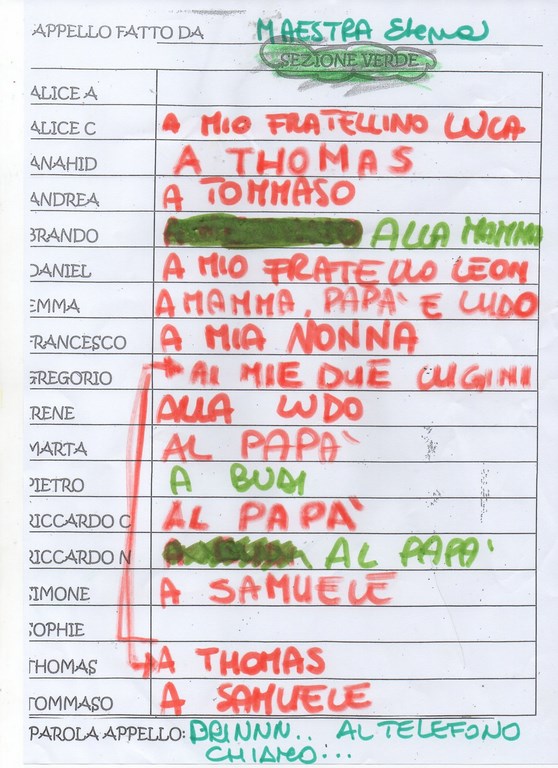 APPELLO FATTO DA MAESTRA Elena
SEZIONE VERDE
ALICE A
ALICE C A MIO FRATELLINO LUCA
ANAHID A THOMAS
ANDREA A TOMMASO
BRANDO ALLA MAMMA
DANIEL A MIO FRATELLO LEON
EMMA A MAMMA, PAPA' E LUDO
FRANCESCO A MIA NONNA
GREGORIO AI MIE DUE CUGINI
IRENE ALLA LUDO
MARTA AL PAPA'
PIETRO A BUDI
RICCARDO C AL PAPA'
RICCARDO N AL PAPA'
SIMONE A SAMUELE
SOPHIE
THOMAS A THOMAS
TOMMASO A SAMUELE
PAROLA APPELLO: DRINNN.. AL TELEFONO
CHIAMO...